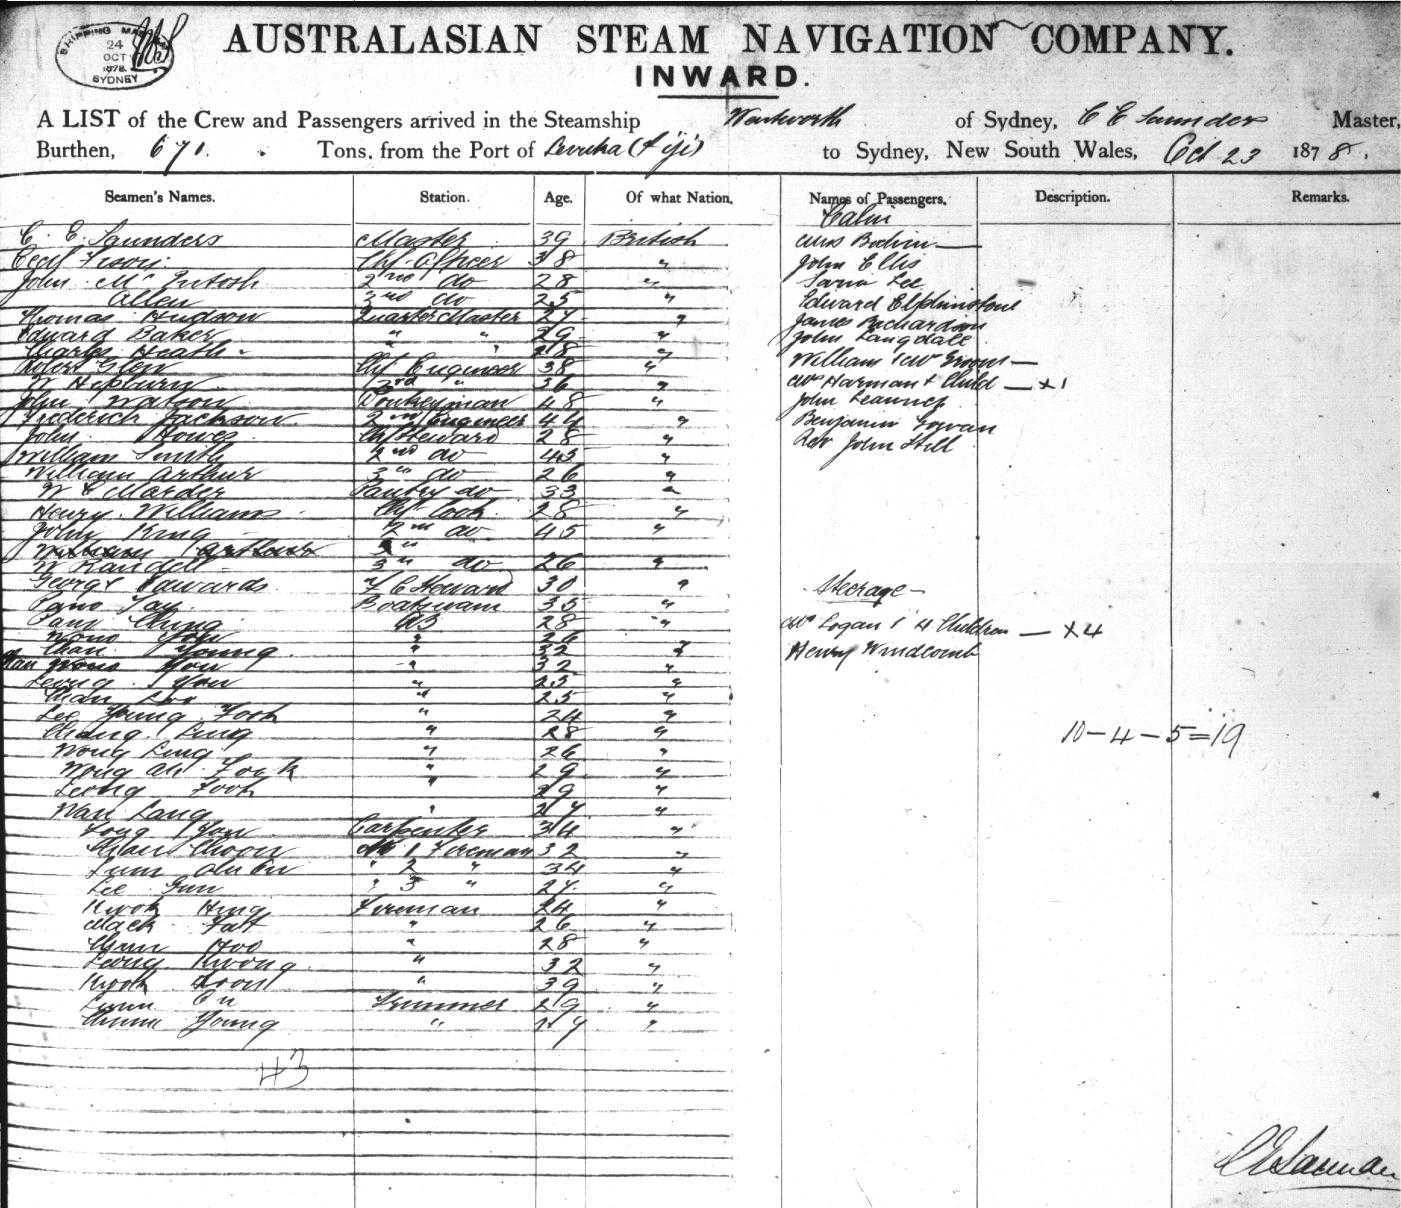 SHIPPING MASTER
24
OCT
1878
SYDNEY
AUSTRALASIAN STEAM NAVIGATION COMPANY.
INWARD.
A LIST of the Crew and Passengers arrived in the Steamship Wentworth of Sydney, C E Saunders Master,
Burthen, 671 Tons, from the Port of Levuka (Fiji) to Sydney, New South Wales, Oct 23 1878,
Seamen's Names. Station. Age. Of what Nation. Names of Passengers. Description. Remarks.
C. E. Saunders Master 39 British
Cecil Chf Officer 38 "
John McIntosh 2nd do 28 "
Allen 3rd do 25 "
Thomas Hudson Quarter Master 27 "
Edward Baker " " 29 "
Charles Heath " " 28 "
Robert Glen Chf Engineer 38 "
W Hepburn 3rd " 36 "
John Watson Donkeyman 48 "
Frederick Jackson 2nd Engineer 44 "
John Howes Chf Steward 28 "
William Smith 2nd do 45 "
William Arthur 3" do 26 "
W E Marder Pantry do 33 "
Henry Williams Chf Cook 28 "
John King 2nd do 45 "
William Arthur 3"
W Randell 3" do 26 "
George Edwards F C Steward 30 "
Boatswain 35 "
Chung AB 28 "
Wong You " 26 "
Chan Young " 32 "
You " 32 "
Leong You " 25 "
Chan " 25 "
Lee Young Fook " 24 "
Chang Ling " 28 "
Wong Ling " 26 "
Wong Ah Fook " 29 "
Leong Fook " 39 "
Wan Lang " 27 "
Fong You Carpenter 34 "
Chan Choon No 1 Fireman 32 "
Lum " 2 " 34 "
Lee Gun " 3 " 27 "
Kwok Hing Fireman 24 "
Mack Fatt " 26 "
Chun Hoo " 28 "
Leong Kwong " 32 "
Kwok " 39 "
Trimmer 29 "
Young " 27 "
43
Cabin
Miss
John Ellis
Lee
Edward Elphinstone
James Richardson
John Langdale
William
Mrs Harman + Child — x 1
John
Benjamin Gowan
Rev John Still
Steerage
Mrs Logan 4 Children — x 4
Henry Windcomb
10 - 4 - 5 = 19